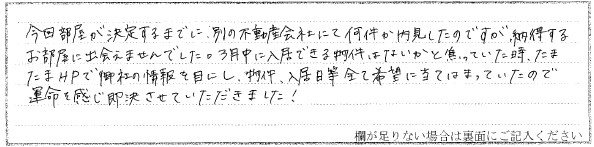 今回部屋が決定するまでに、別の不動産会社にて何件か内見したのですが納得する
お部屋に出会えませんでした。3月中に入居できる物件はないかと焦っていた時、たま
たまHPで御社の情報を目にし、物件、入居日等全て希望に当てはまっていたので
運命を感じ即決させていただきました!
欄が足りない場合は裏面にご記入ください